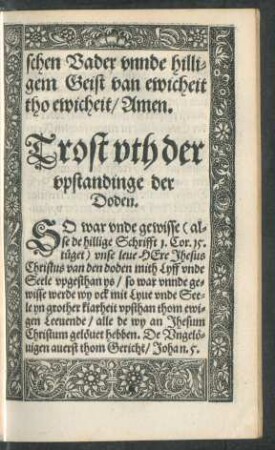 schen Vader vnnde hilli-
gem Geist van ewicheit
tho ewicheit/ Amen.
Trost vth der
vpstandinge der
Doden.
SO war vnde gewisse (al-
se de hillige Schrifft 1. Cor. 15.
tüget) vnse leue HEre Jhesus
Christus van den doden mith Lyff vnde
Seele vpgesthan ys/ so war vnnde ge-
wisse werde wy ock mit Lyue vnde See-
le yn grother klarheit vpsthan thom ewi-
gen Leeuende/ alle de wy an Jhesum
Christum gelöuet hebben. De Vngelö-
uigen auerst thom Gericht/ Johan. 5.